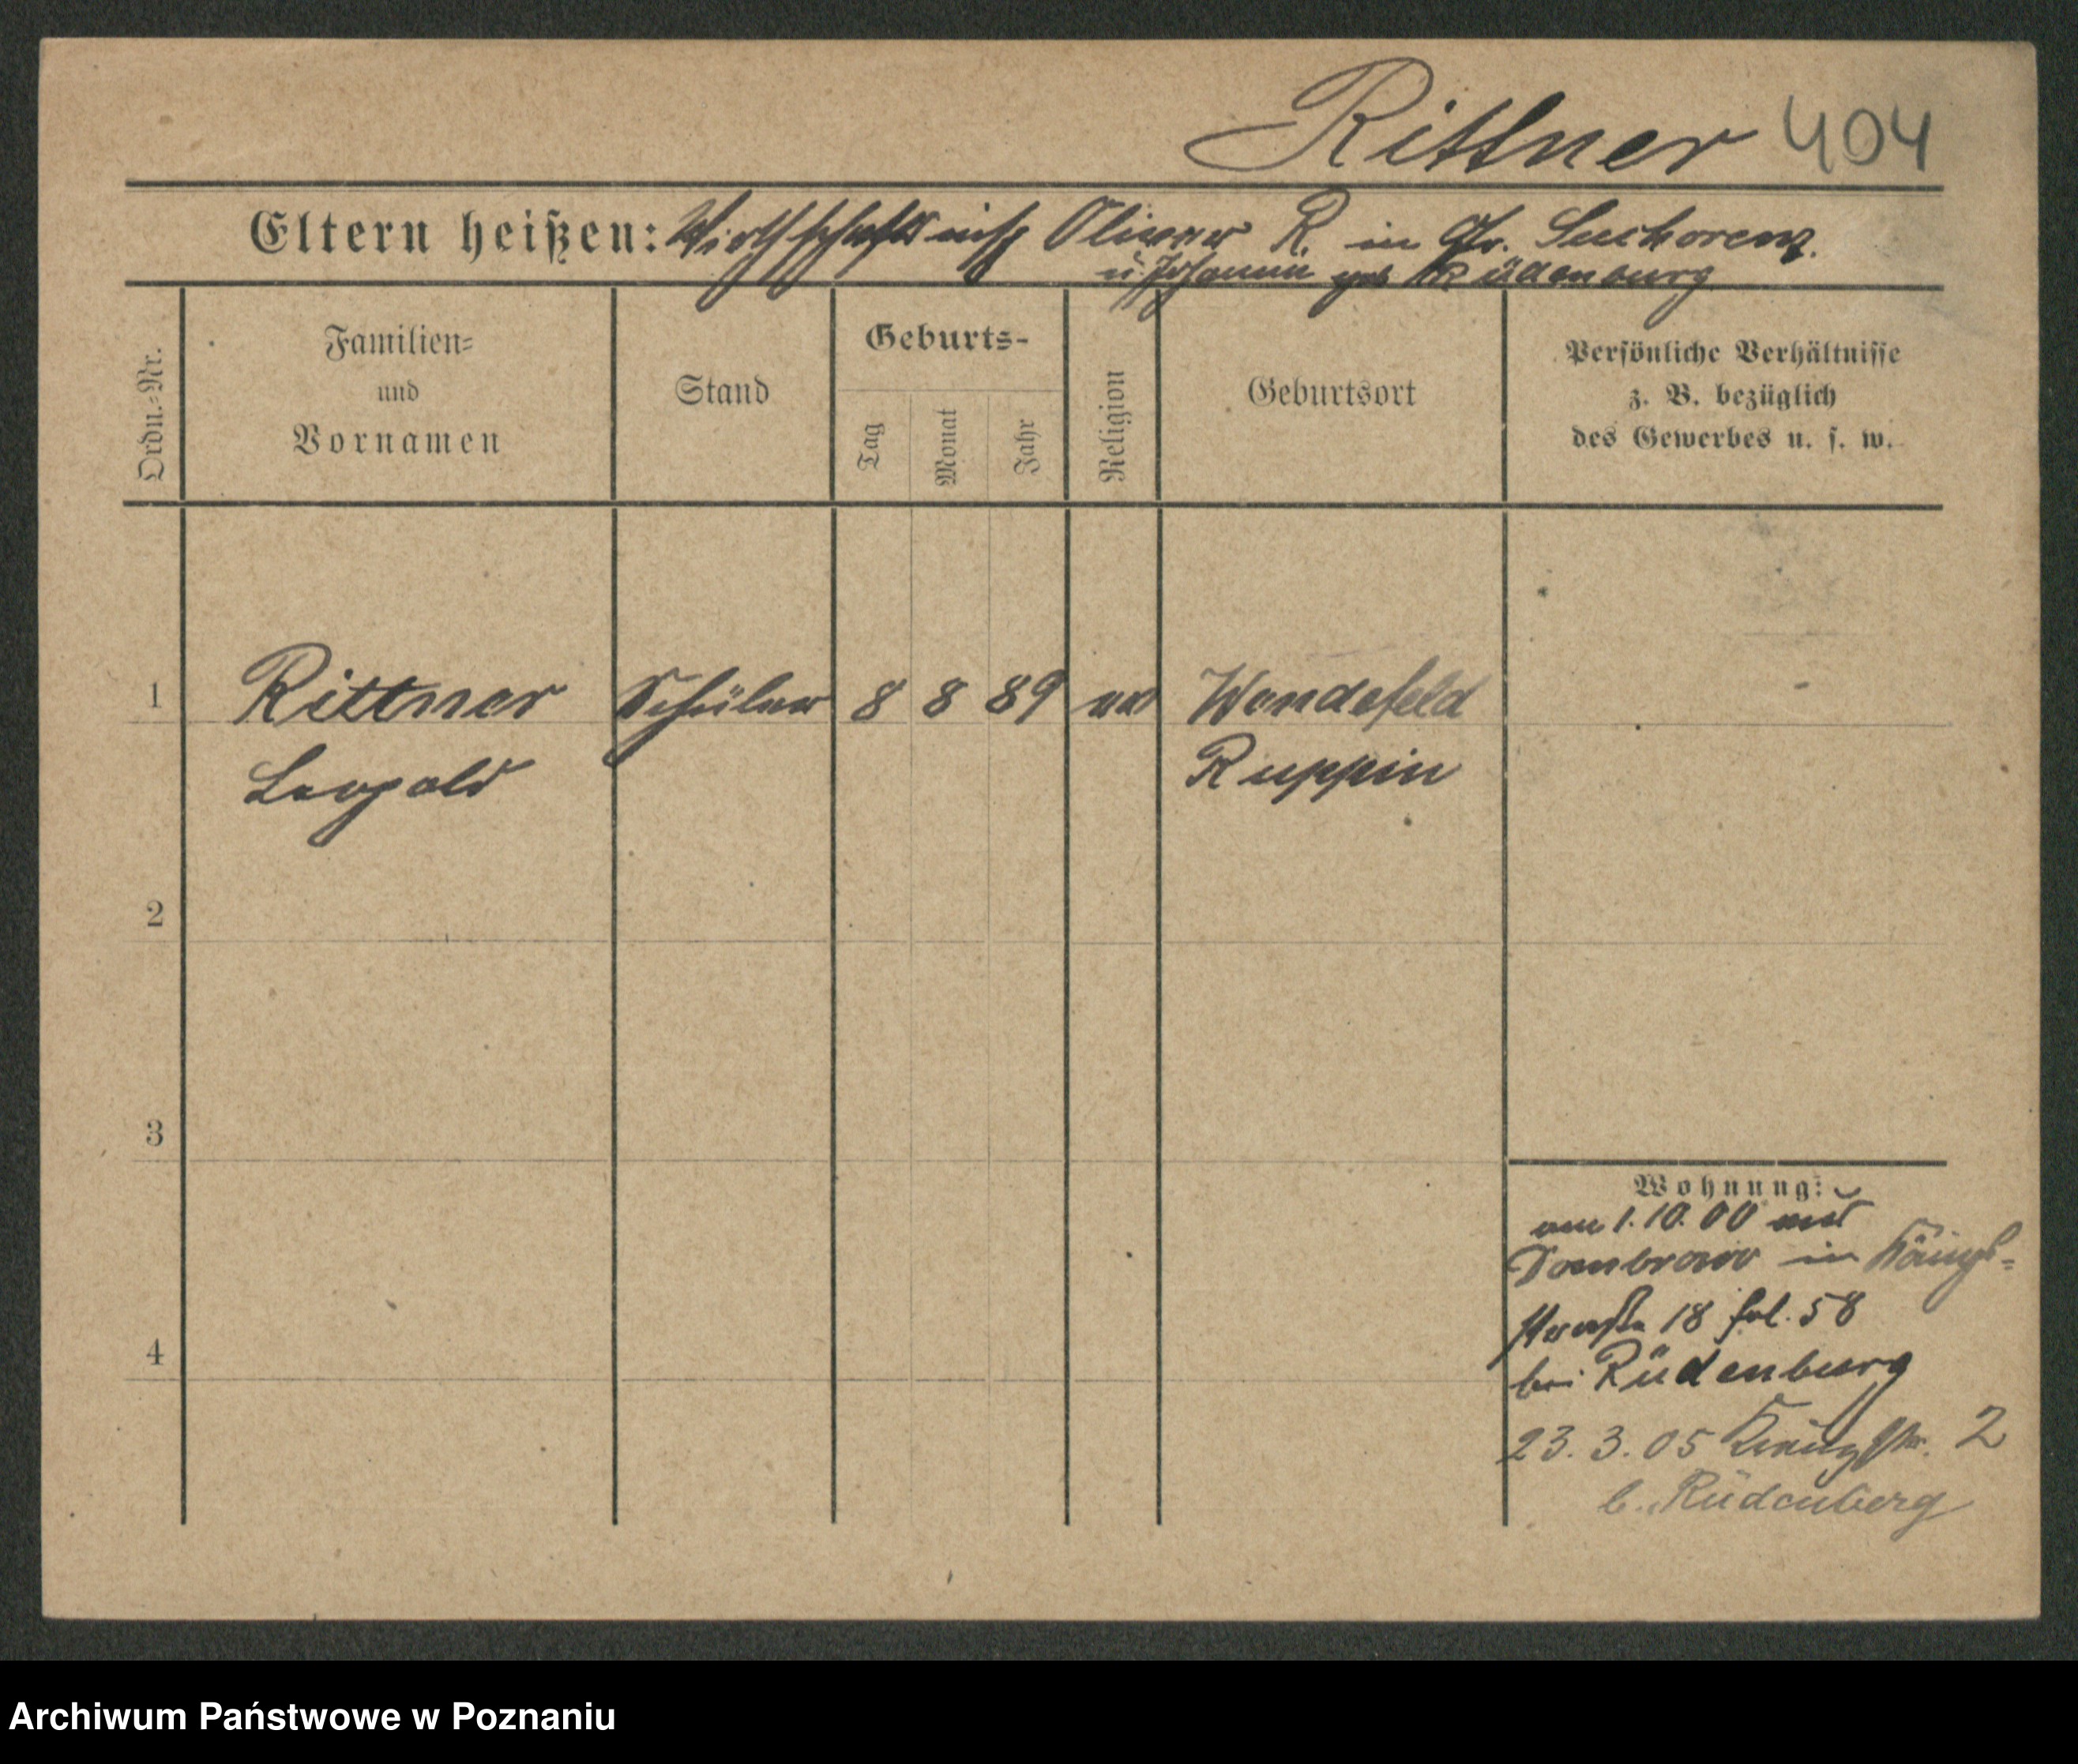 Rittner 404
Eltern heißen: Wirthschaftsinsp Oliver R. in Gr. Suchorenz.
u. geb Rüdenburg
Ordn.-Nr.
Familien-
und
Vornamen
Stand
Geburts-
Tag
Monat
Jahr
Religion
Geburtsort
Persönliche Verhältnisse
z. B. bezüglich
des Gewerbes u. s. w.
1 Rittner Schüler 8 8 89 ev Wondefeld
Leopold Ruppin
2
3
4
Wohnung:
am 1.10.00 aus
Dombrowo in Königs-
straße 18 fol. 58
bei Rüdenburg
23. 3. 05 2
b. Rüdenberg
Archiwum Państwowe w Poznaniu